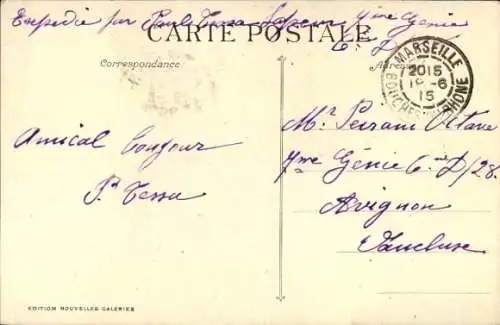 Expédié par Paul Tessa Sapeur 7me Génie
CARTE POSTALE
6me D
Correspondance
Adresse
MARSEILLE
2015
19-6
15
BOUCHES DU RHONE
Amical bonjour
P. Tessa
Mr Peirani Octave
7me Génie 6me D/28.
Avignon
Vaucluse
EDITION NOUVELLES GALERIES